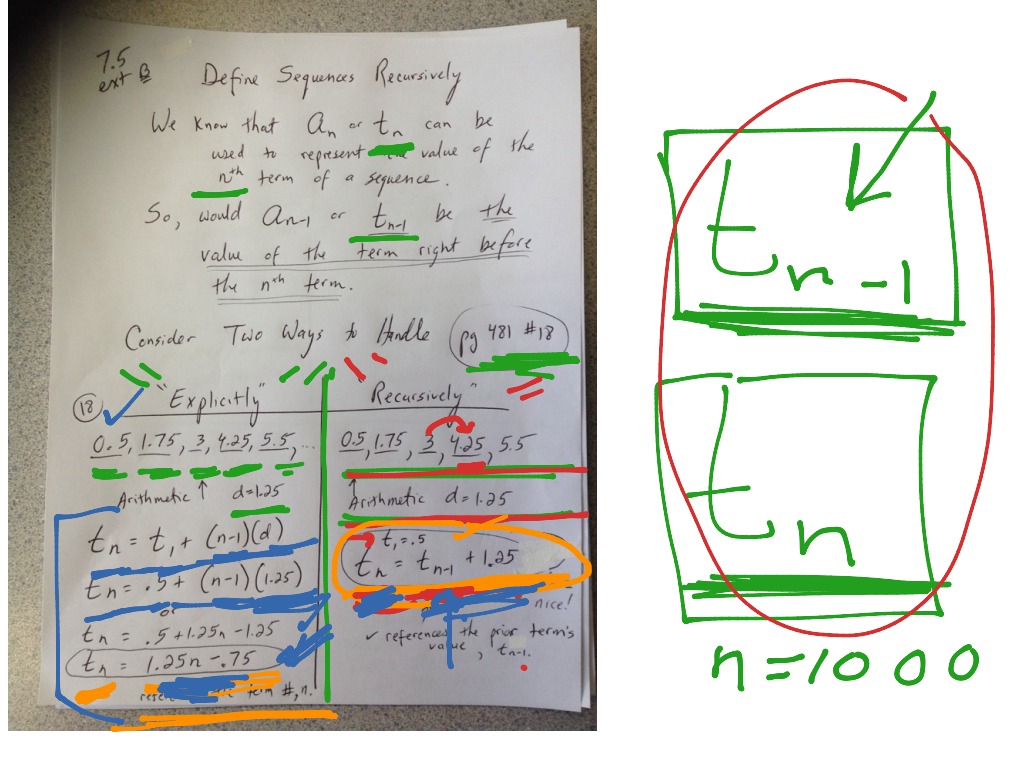 7.5
ext B
Define Sequences Recursively
We know that an or tn can be
used to represent the value of the
nth term of a sequence.
So, would an-1 or tn-1 be the
value of the term right before
the nth term.
Consider Two Ways to Handle
pg 481 #18
18
"Explicitly"
0.5, 1.75, 3, 4.25, 5.5, ...
Arithmetic ↑ d=1.25
tn = t1 + (n-1)(d)
tn = .5 + (n-1)(1.25)
or
tn = .5+1.25n-1.25
tn = 1.25n-.75
term #, n.
"Recursively"
0.5, 1.75, 3, 4.25, 5.5
↑ Arithmetic d=1.25
t1=.5
tn = tn-1 + 1.25
nice!
✓ references the prior term's
value, tn-1.
tn-1
tn
n=1000